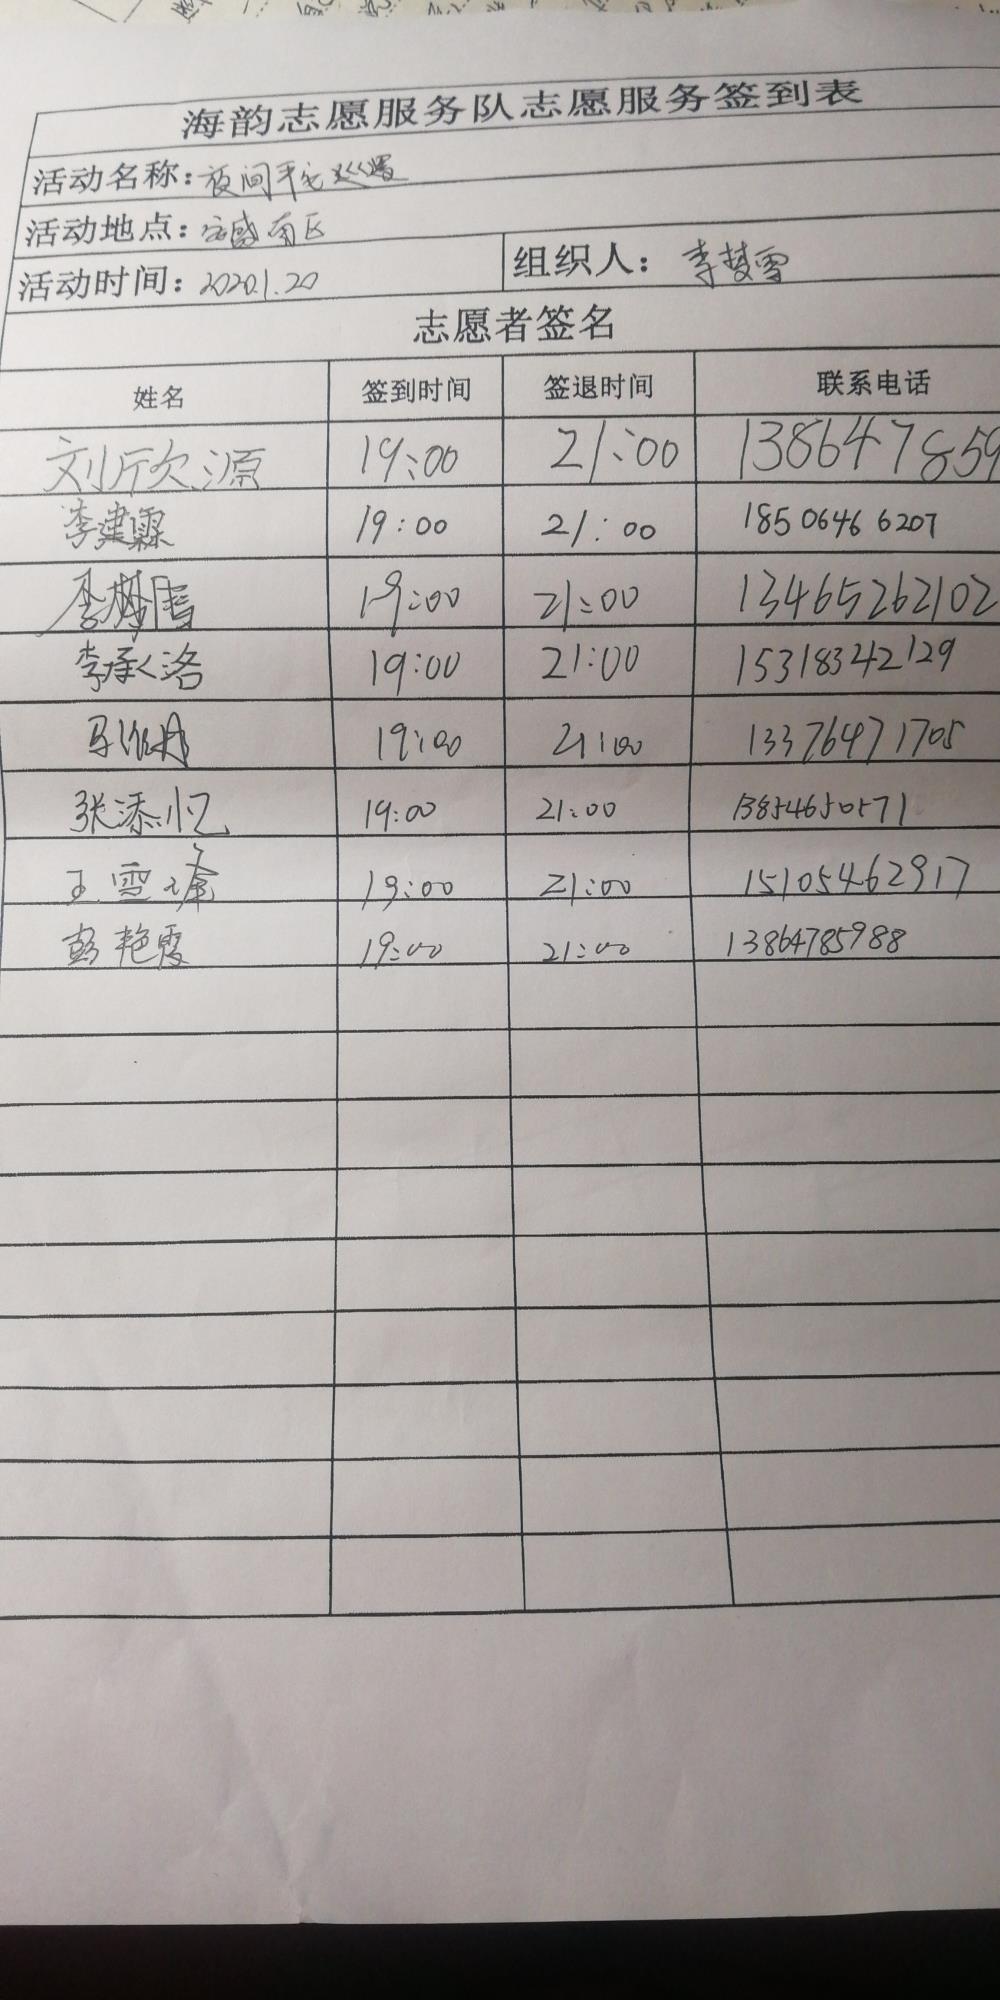 海韵志愿服务队志愿服务签到表
活动名称：夜间平安巡逻
活动地点：安盛南区
活动时间：2020.1.20 组织人：李梦雪
志愿者签名
姓名 签到时间 签退时间 联系电话
刘欣源 19:00 21:00 138647859
李建霖 19:00 21:00 18506466207
19:00 21:00 13465262102
李承洛 19:00 21:00 15318342129
19:00 21:00 13376471705
张添忆 19:00 21:00 13854650571
王雪峰 19:00 21:00 15105462917
彭艳霞 19:00 21:00 13864785988